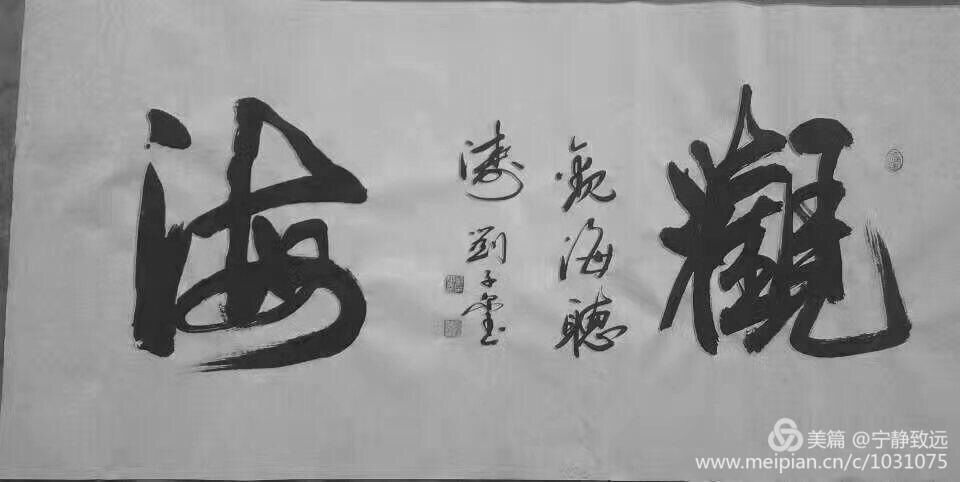 觀
觀海聽
濤 劉子玺
海
美篇 @宁静致远
www.meipian.cn/c/1031075